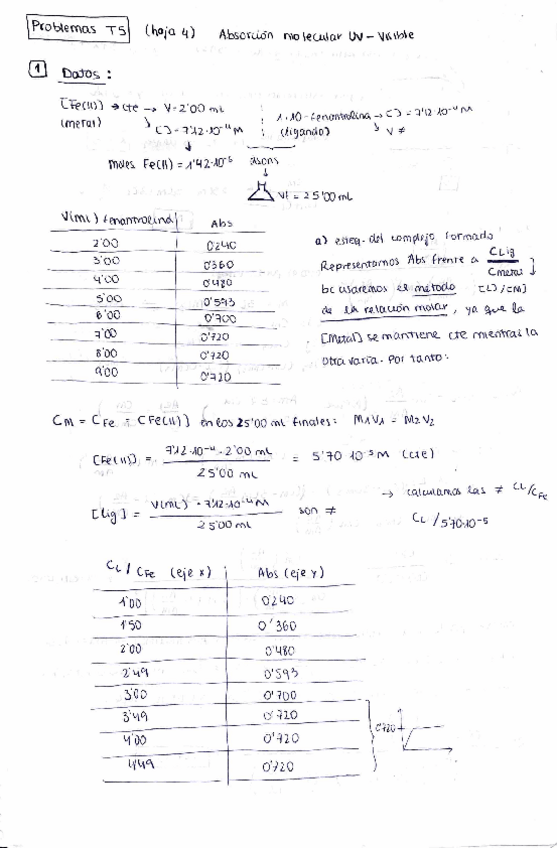 Problemas T5 (hoja 4) Absorción molecular UV-Visible
1 Datos:
[Fe(II)] → cte → V = 2'00 mL
(metal) ↳ [] = 7'12·10⁻⁴ M
↓
moles Fe(II) = 1'42·10⁻⁶
1,10-fenantrolina → [] = 7'12·10⁻⁴ M
(ligando) ↳ V ≠
Vf = 25'00 mL
V(mL) fenantrolina Abs
2'00 0'240
3'00 0'360
4'00 0'480
5'00 0'593
6'00 0'700
7'00 0'720
8'00 0'720
9'00 0'720
a) esteq. del complejo formado
Representamos Abs frente a CLig / Cmetal ↓
bc usaremos el método [L]/[M]
de la relación molar, ya que la
[Metal] se mantiene cte mientras la
otra varía. Por tanto:
CM = CFe = [Fe(II)] en los 25'00 mL finales: M₁V₁ = M₂V₂
[Fe(II)] = 7'12·10⁻⁴ · 2'00 mL / 25'00 mL = 5'70·10⁻⁵ M (cte)
[Lig] = V(mL) · 7'12·10⁻⁴ M / 25'00 mL son ≠
→ calculamos las ≠ CL/CFe
CL / 5'70·10⁻⁵
CL / CFe (eje x) Abs (eje y)
1'00 0'240
1'50 0'360
2'00 0'480
2'49 0'593
3'00 0'700
3'49 0'720
4'00 0'720
4'49 0'720
0'720